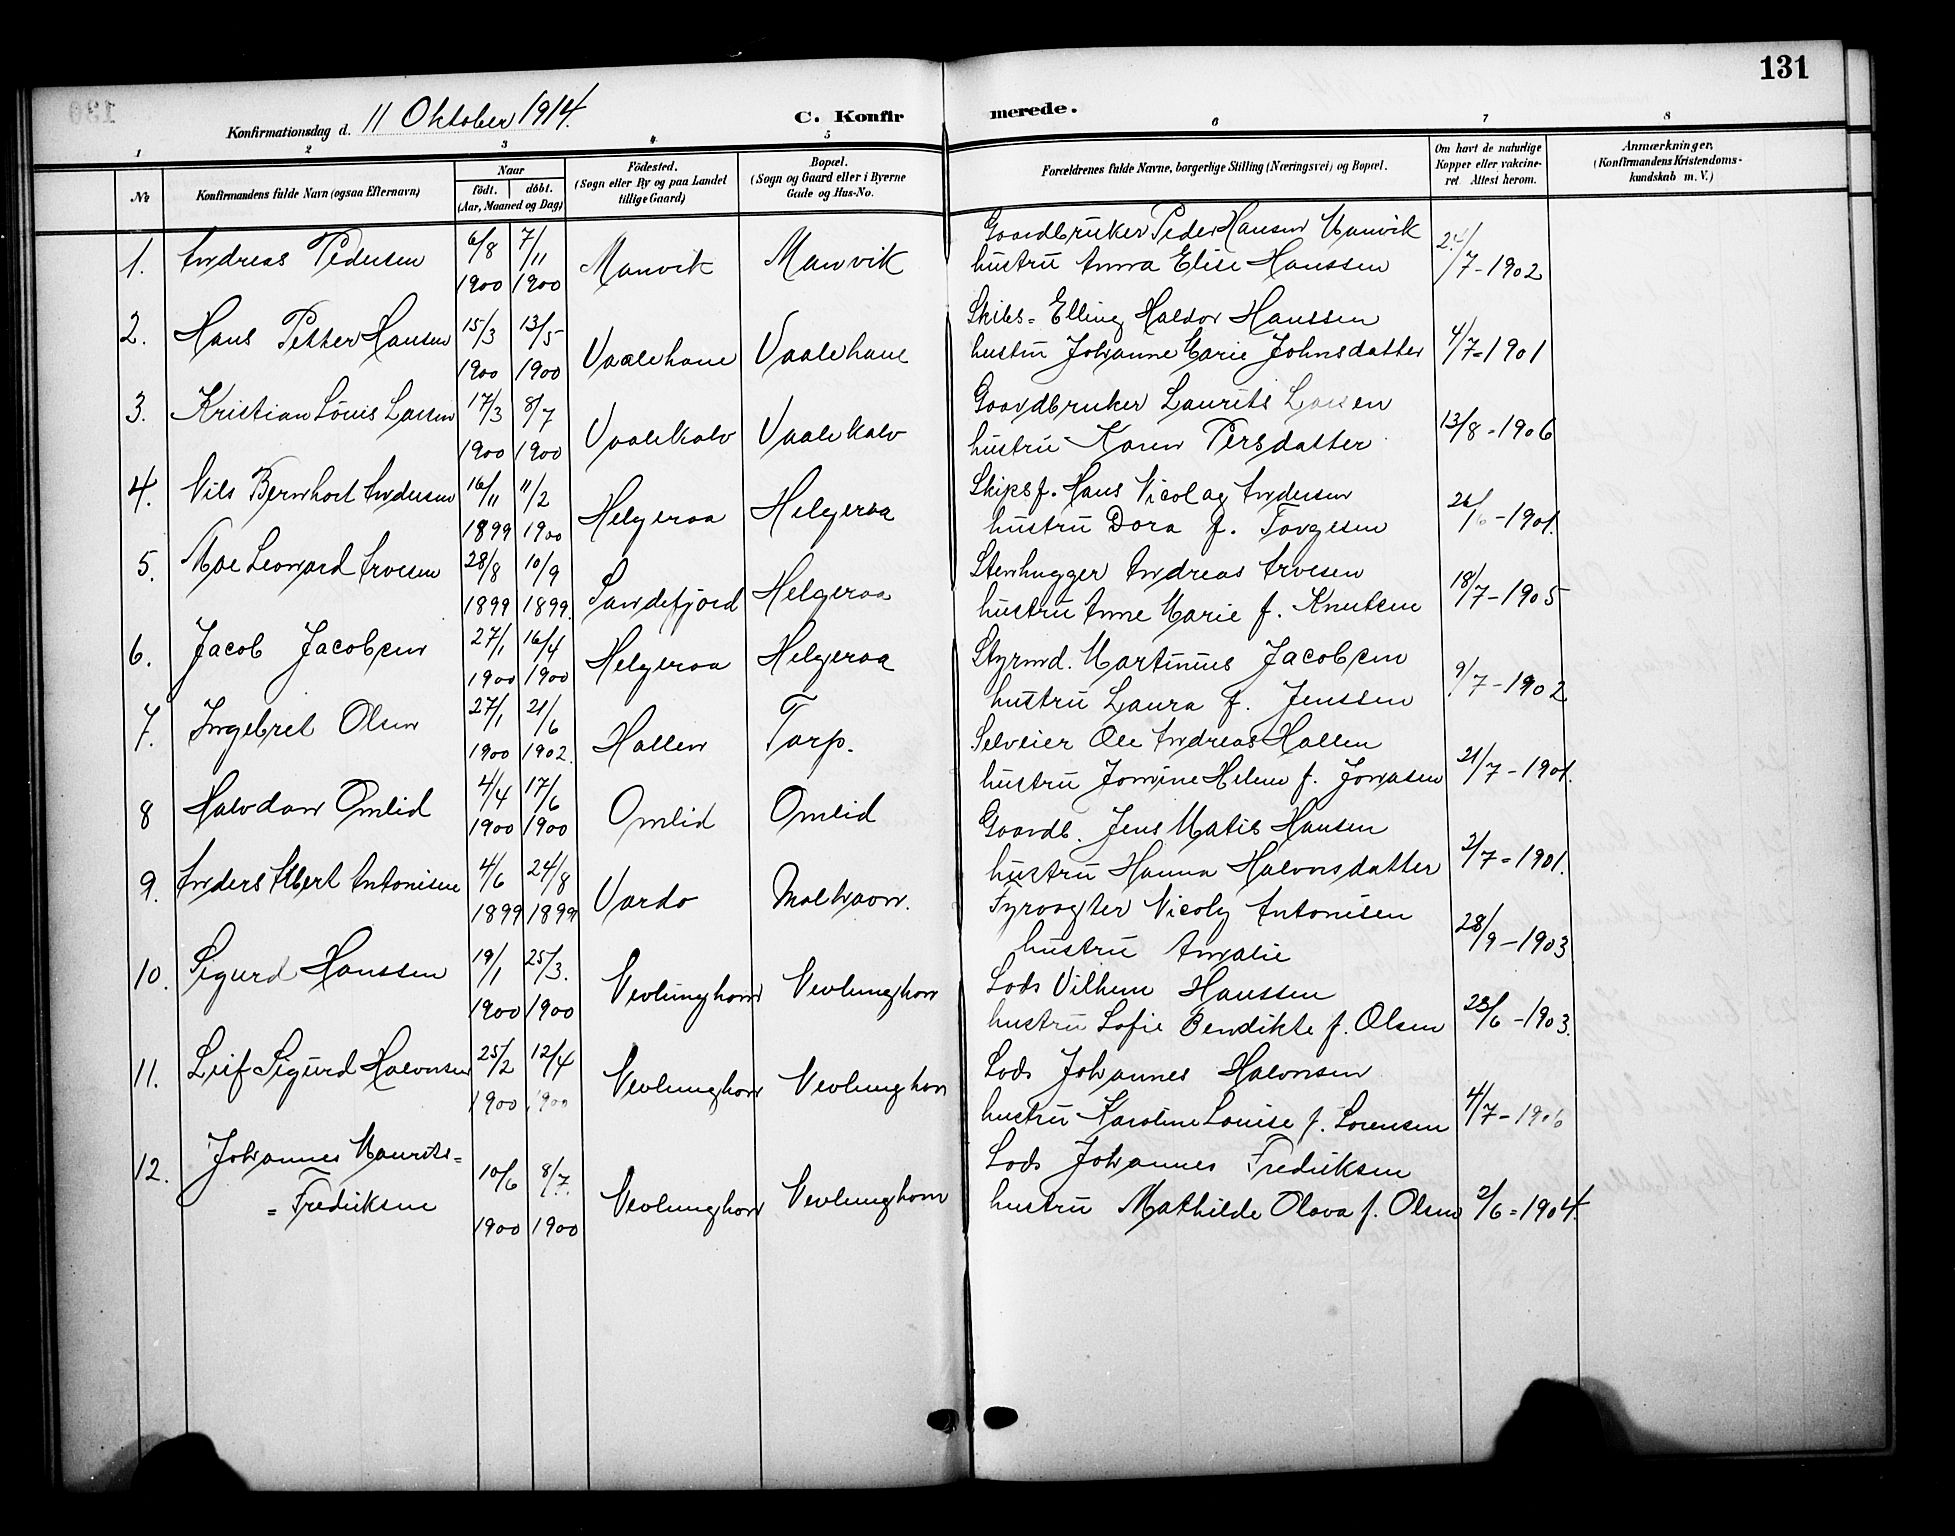 131
Konfirmationsdag d. 11 Oktober 1914. C. Konfirmerede.
1 2 3 4 5 6 7 8
№ Konfirmandens fulde Navn (ogsaa Efternavn) Naar födt. döbt. (Aar, Maaned og Dag) Födested. (Sogn eller By og paa Landet tillige Gaard) Bopæl. (Sogn og Gaard eller i Byerne Gade og Hus-No. Forældrenes fulde Navne, borgerlige Stilling (Næringsvei) og Bopæl. Om havt de naturlige Kopper eller vakcineret Attest herom. Anmærkninger, (Konfirmandens Kristendomskundskab m. V.)
1. Andreas Pedersen 6/8 1900 7/11 1900 Manvik Manvik Gaardbruker Peder Hansen Manvik
hustru Anna Elise Hanssen 24/7-1902
2. Hans Petter Hansen 15/3 1900 13/5 1900 Vaalehane Vaalehane Skibs= Elling Haldor Hanssen
hustru Johanne Marie Johnsdatter 4/7=1901
3. Kristian Louis Larsen 17/3 1900 8/7 1900 Vaalekalv Vaalekalv Gaardbruker Laurits Larsen
hustru Karen Persdatter 13/8-1906
4. Nils Bernhart Andersen 16/11 1899 11/2 1900 Helgeraa Helgeraa Skipsf. Hans Nicolay Andersen
hustru Dora f. Torgesen 26/6-1901.
5. Moe Leonard Arvesen 28/8 1899 10/9 1899. Sandefjord Helgeraa Stenhugger Andreas Arvesen
hustru Anne Marie f. Knutsen 18/7-1905
6. Jacob Jacobsen 27/1 1900 16/4 1900 Helgeraa Helgeraa Styrmd. Martinius Jacobsen
hustru Laura f. Jenssen 9/7-1902
7. Ingebret Olsen 27/1 1900 21/6 1902. Hallen Tarp. Selveier Ole Andreas Hallen
hustru Jomine Helene f. Jonasen 21/7-1901.
8 Halvdan Omlid 4/4 1900 17/6 1900 Omlid Omlid Gaardb. Jens Matis Hansen
hustru Hanna Halvorsdatter 2/7=1901.
9. Anders Albert Antonisen 4/6 1899 24/8 1899 Vardo Fyrvogter Nicoly Antonisen
hustru Amalie 28/9-1903
10. Sigurd Hanssen 19/1 1900 25/3. 1900 Nevlunghavn Nevlunghavn Lods Vilhem Hanssen
hustru Sofie Bendikte f. Olsen 23/6-1903.
11. Leif Sigurd Halvorsen 25/2 1900 12/4 1900 Nevlunghavn Nevlunghavn Lods Johannes Halvorsen
hustru Karoline Louise f. Lorensen 4/7-1906
12. Johannes Maurits= 
= Fredriksen 10/6 1900 8/7. 1900 Nevlunghavn Nevlunghavn Lods Johannes Fredriksen
hustru Mathilde Olava f. Olsen 2/6=1904.